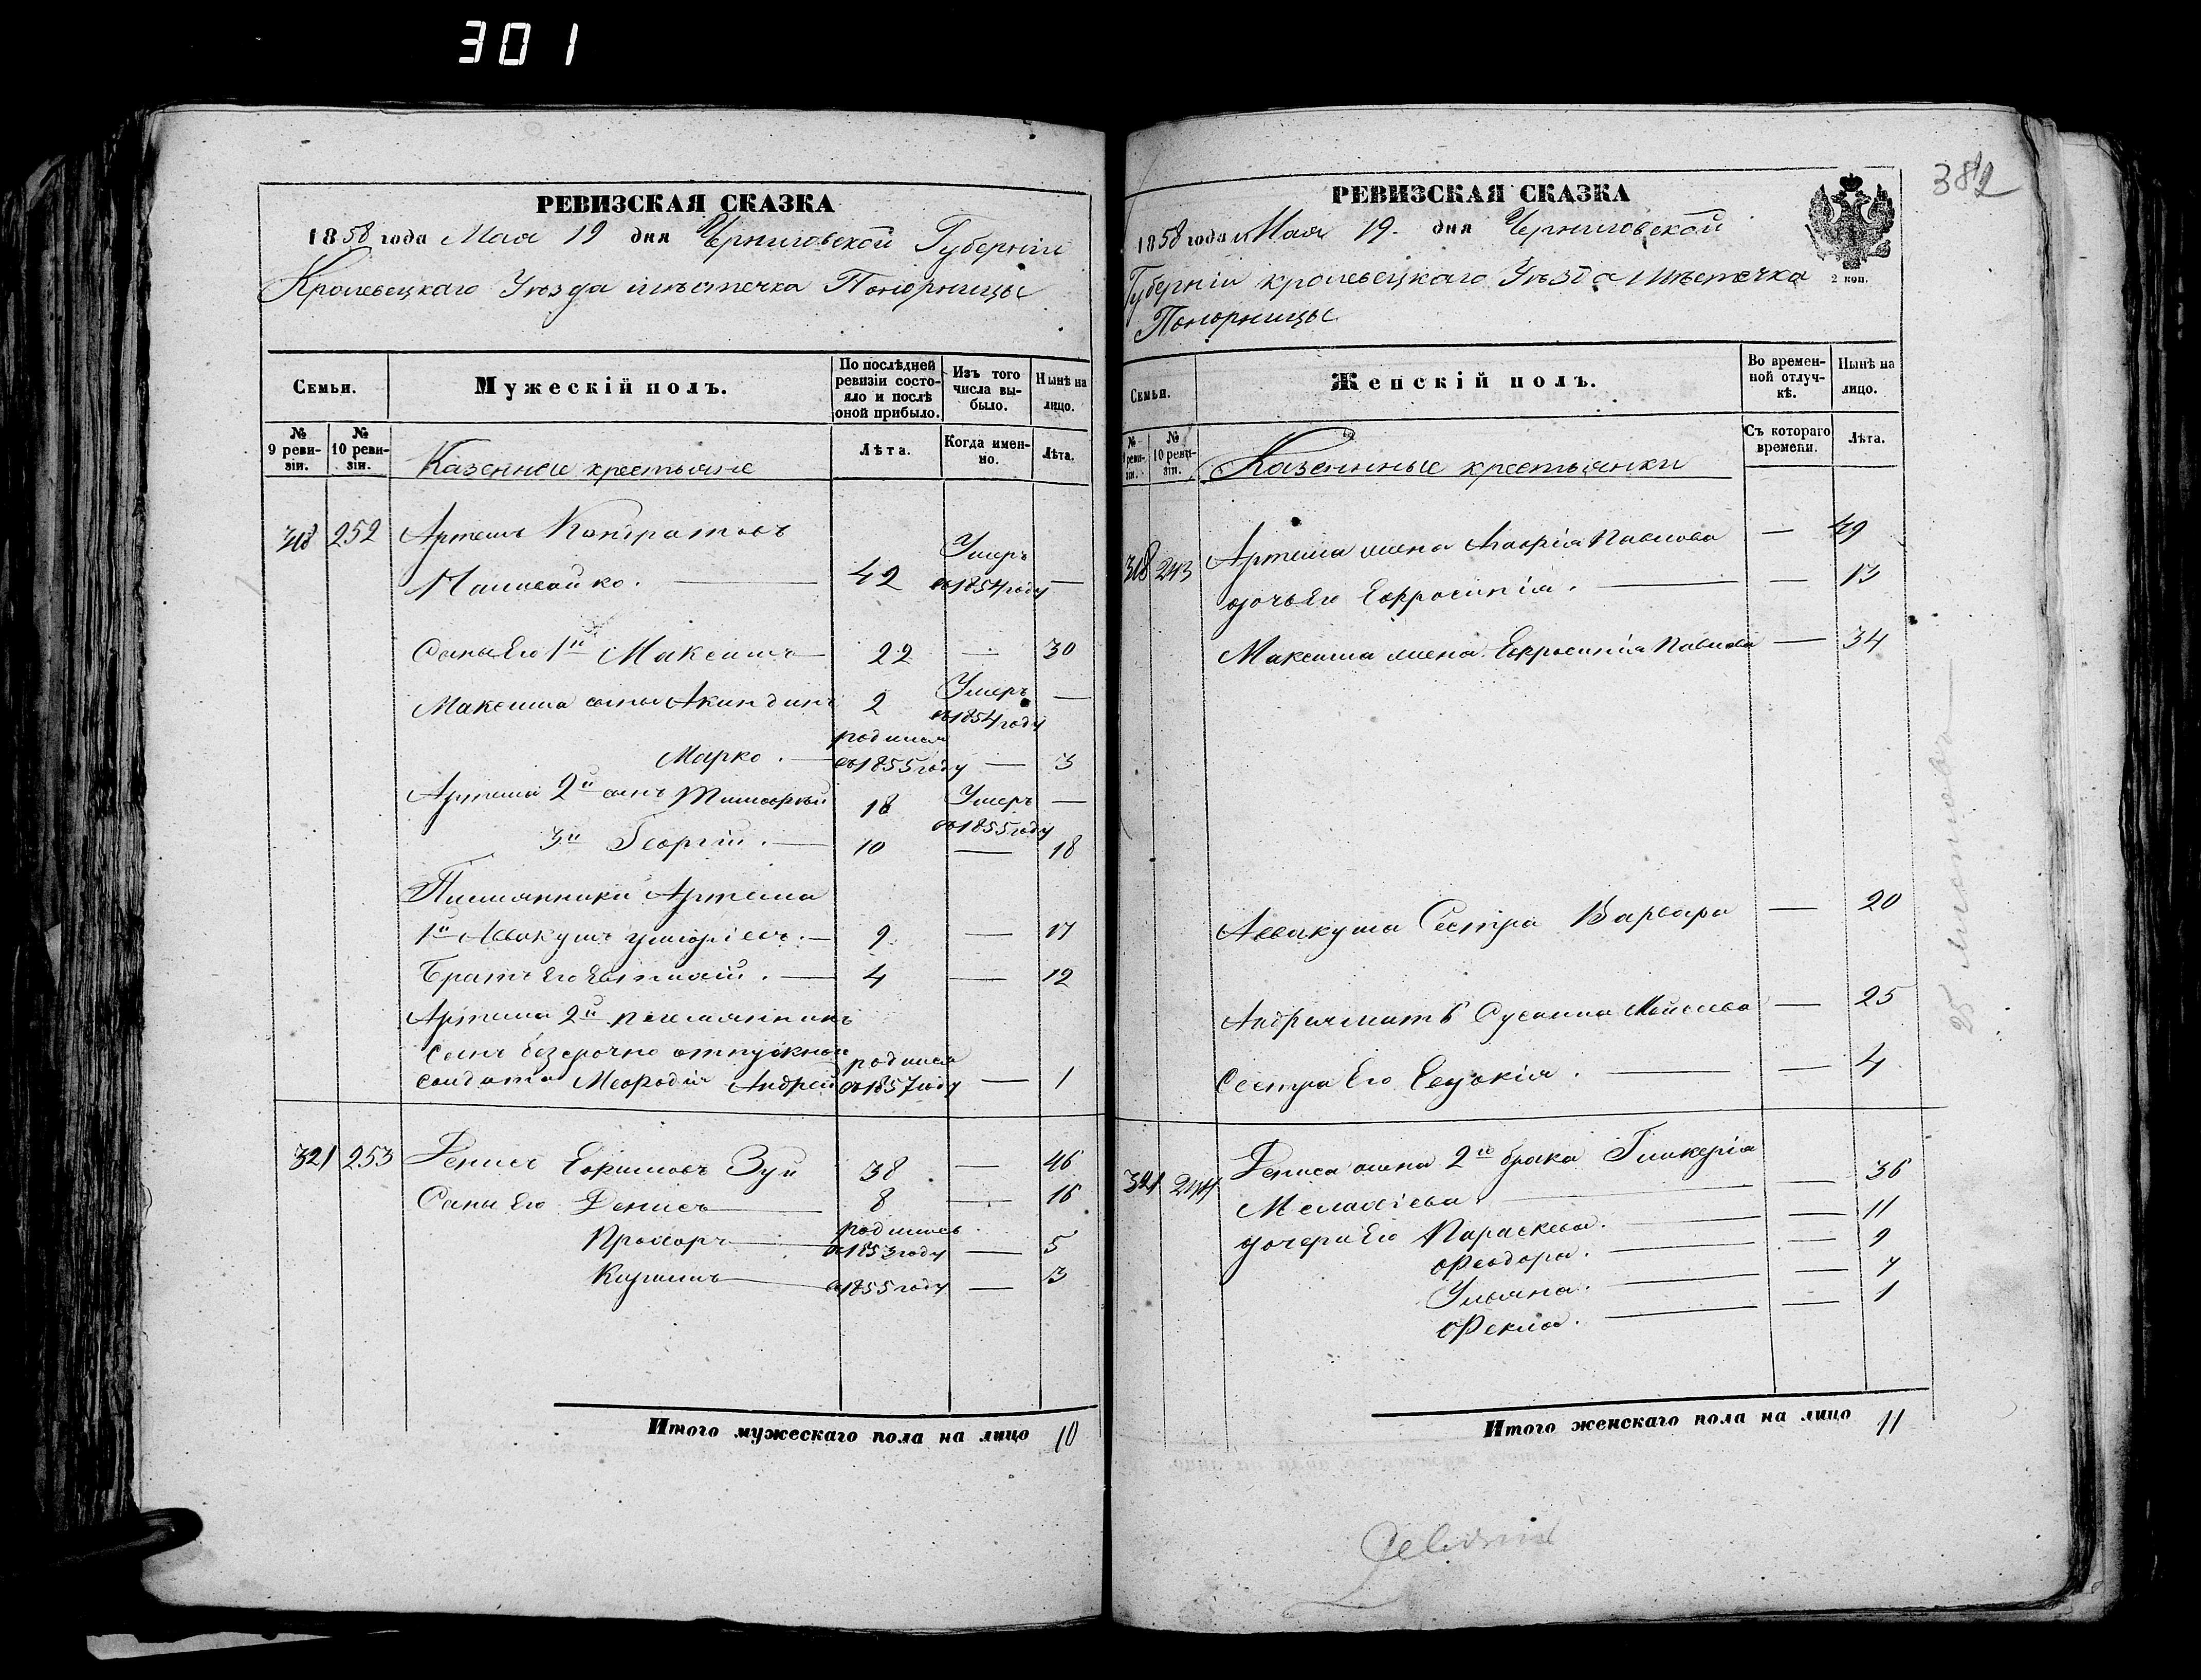 301
РЕВИЗСКАЯ СКАЗКА
1858 года Мая 19 дня Черниговской Губерніи
Кролевецкаго Уѣзда мѣстечка Понорницы
Семьи.
Мужескій полъ.
По послѣдней ревизіи состояло и послѣ оной прибыло.
Изъ того числа выбыло.
Нынѣ на лицо.
№ 9 ревизіи.
№ 10 ревизіи.
Казенные крестьяне
Лѣта.
Когда именно.
Лѣта.
318 252 Артемъ Кондратовъ
42 Умеръ въ 1854 году —
Сынъ Его 1й Максимъ 22 — 30
Максима сынъ Акиндинъ 2 Умеръ въ 1854 году —
Марко. родился въ 1855 году — 3
Артема 2й сынъ Тимофей 18 Умеръ въ 1855 году —
3й Георгій. 10 — 18
Племянники Артема
1й Аввакумъ 9 — 17
Братъ Его Евтихій. 4 — 12
Артема 2й племянникъ
Сынъ безсрочно отпускнаго
солдата Мефодія Андрей родился въ 1857 году — 1
321 253 Денисъ Ефимовъ Зуй 38 — 46
Сыны Его Денисъ 8 — 16
Прохоръ родились въ 1853 году — 5
Кирилъ въ 1855 году — 3
Итого мужескаго пола на лицо 10
382
РЕВИЗСКАЯ СКАЗКА
1858 года Мая 19. дня Черниговской
Губерніи кролевецкаго Уѣзда Мѣстечка
Понорницы
2 коп.
Семьи.
Женскій полъ.
Во временной отлучкѣ.
Нынѣ на лицо.
№ 9 ревизіи.
№ 10 ревизіи.
Казенные крестьянки
Съ котораго времени.
Лѣта.
318 243 Артема жена Агафія Павлова — 49
дочь Его Ефросинія. — 13
Максима жена Ефросинія Павлова — 34
Аввакума Сестра Варвара — 20
Андрея мать Сусанна Моисеева — 25
Сестра Его Евдокія. — 4
321 244 Дениса жена 2го брака Гликерія
Мелахіева — 36
дочери Его Параскева. — 11
Феодора. — 9
Ульяна. — 7
Фекла. — 1
Итого женскаго пола на лицо 11